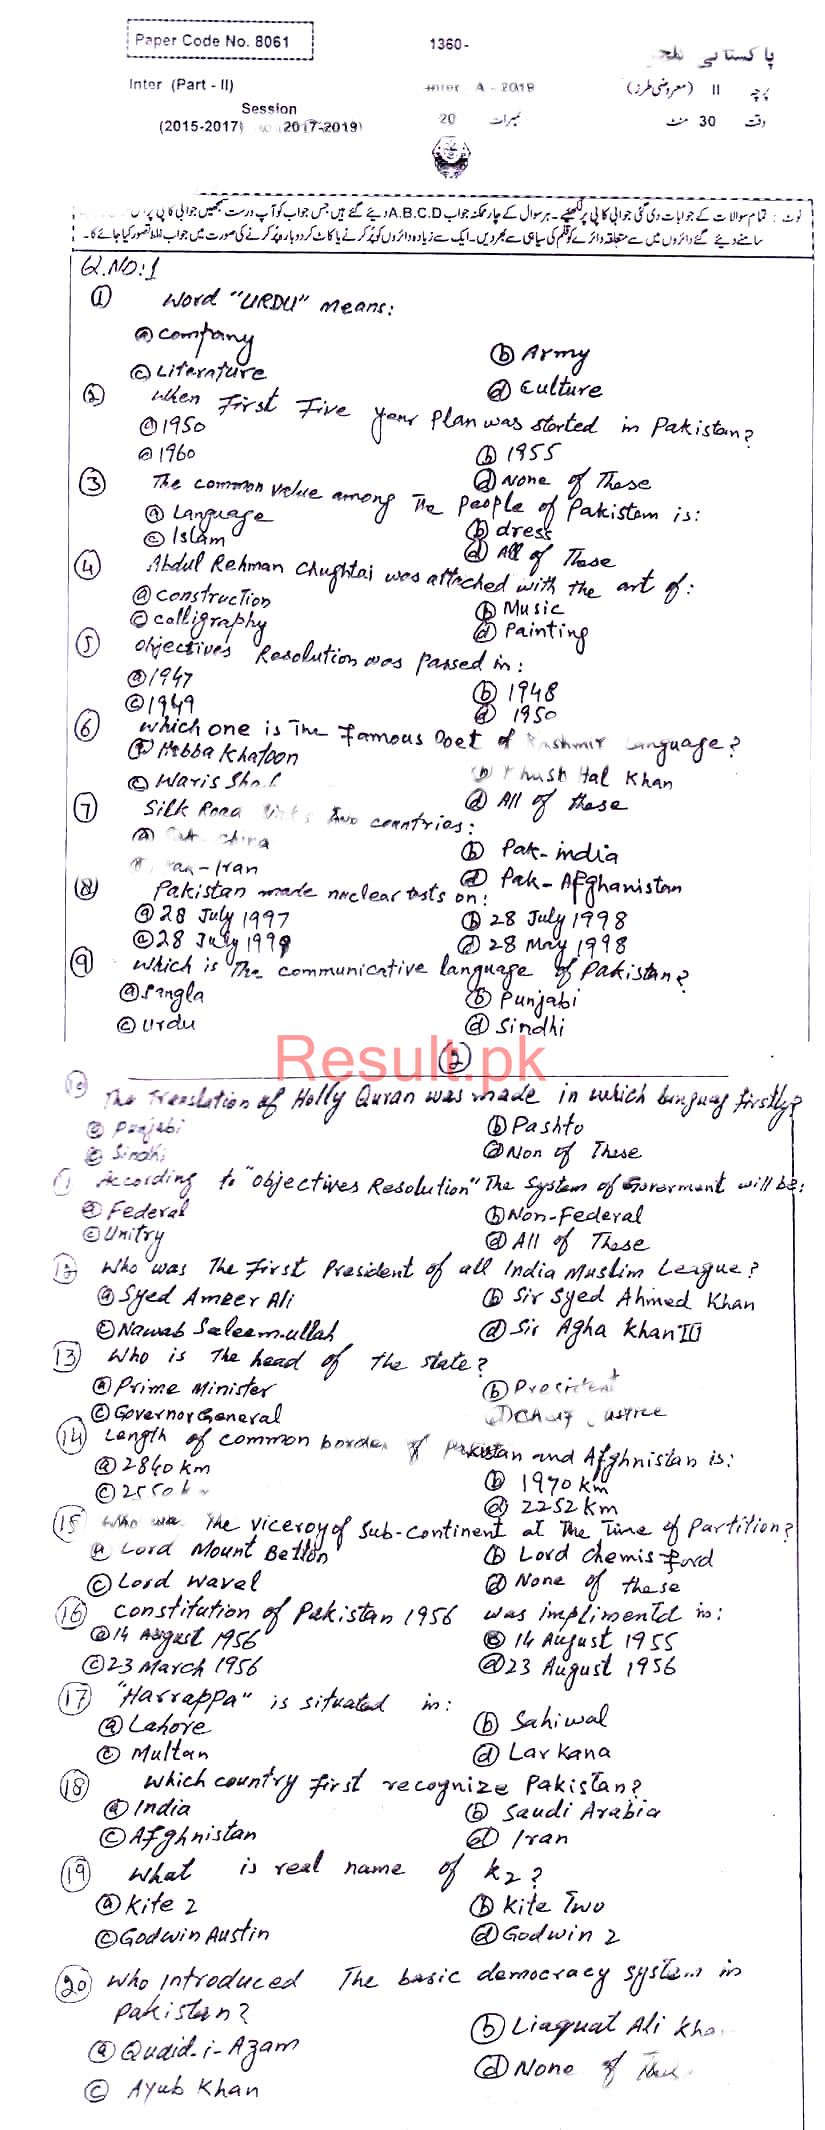 Paper Code No. 8061
1360-
پاکستانی
Inter (Part - II)
Inter - A - 2019
پرچہ II (معروضی طرز)
Session
(2015-2017) to (2017-2019)
20 نمبرات
وقت 30 منٹ
نوٹ : تمام سوالات کے جوابات دی گئی جوابی کاپی پر لکھیے۔ ہر سوال کے چار ممکنہ جواب A.B.C.D دیئے گئے ہیں جس جواب کو آپ درست سمجھیں جوابی کاپی پر اس
سامنے دیئے گئے دائروں میں سے متعلقہ دائرے کو قلم کی سیاہی سے بھر دیں۔ ایک سے زیادہ دائروں کو پُر کرنے یا کاٹ کر دوبارہ پُر کرنے کی صورت میں جواب غلط تصور کیا جائے گا۔
Q.NO:1
① Word "URDU" means:
ⓐ company
ⓑ Army
ⓒ Literature
ⓓ Culture
② When First Five Year Plan was started in Pakistan?
ⓐ 1950
ⓑ 1955
ⓒ 1960
ⓓ None of These
③ The common value among The people of Pakistan is:
ⓐ Language
ⓑ dress
ⓒ Islam
ⓓ All of These
④ Abdul Rehman Chughtai was attached with the art of:
ⓐ construction
ⓑ Music
ⓒ calligraphy
ⓓ Painting
⑤ Objectives Resolution was passed in:
ⓐ 1947
ⓑ 1948
ⓒ 1949
ⓓ 1950
⑥ Which one is The Famous Poet of Kashmir Language?
ⓐ Habba Khatoon
ⓑ Khush Hal Khan
ⓒ Waris Shah
ⓓ All of these
⑦ Silk Road links two countries:
ⓐ Pak-China
ⓑ Pak-india
ⓒ Pak-Iran
ⓓ Pak-Afghanistan
⑧ Pakistan made nuclear tests on:
ⓐ 28 July 1997
ⓑ 28 July 1998
ⓒ 28 July 1999
ⓓ 28 May 1998
⑨ Which is The communicative language of Pakistan?
ⓐ Bangla
ⓑ Punjabi
ⓒ Urdu
ⓓ Sindhi
Result.pk
②
⑩ The Translation of Holly Quran was made in which language firstly?
ⓐ Punjabi
ⓑ Pashto
ⓒ Sindhi
ⓓ Non of These
⑪ According to "Objectives Resolution" The System of Goverment will be:
ⓐ Federal
ⓑ Non-Federal
ⓒ Unitry
ⓓ All of These
⑫ Who was The First President of all India Muslim League?
ⓐ Syed Ameer Ali
ⓑ Sir Syed Ahmed Khan
ⓒ Nawab Saleem-ullah
ⓓ Sir Agha Khan III
⑬ Who is The head of the state?
ⓐ Prime Minister
ⓑ President
ⓒ Governor General
ⓓ Chief Justice
⑭ Length of common border of Pakistan and Afghnistan is:
ⓐ 2840 km
ⓑ 1970 km
ⓒ 2550 km
ⓓ 2252 km
⑮ Who was The viceroy of Sub-continent at The Time of Partition?
ⓐ Lord Mount Betton
ⓑ Lord chemis ford
ⓒ Lord Wavel
ⓓ None of these
⑯ Constitution of Pakistan 1956 was implimentd in:
ⓐ 14 August 1956
ⓑ 14 August 1955
ⓒ 23 March 1956
ⓓ 23 August 1956
⑰ "Harrappa" is situated in:
ⓐ Lahore
ⓑ Sahiwal
ⓒ Multan
ⓓ Larkana
⑱ Which country first recognize Pakistan?
ⓐ India
ⓑ Saudi Arabia
ⓒ Afghnistan
ⓓ Iran
⑲ What is real name of K2?
ⓐ Kite 2
ⓑ Kite Two
ⓒ Godwin Austin
ⓓ Godwin 2
⑳ Who introduced The basic democracy system in
Pakistan?
ⓐ Quaid-i-Azam
ⓑ Liaquat Ali Khan
ⓒ Ayub Khan
ⓓ None of These